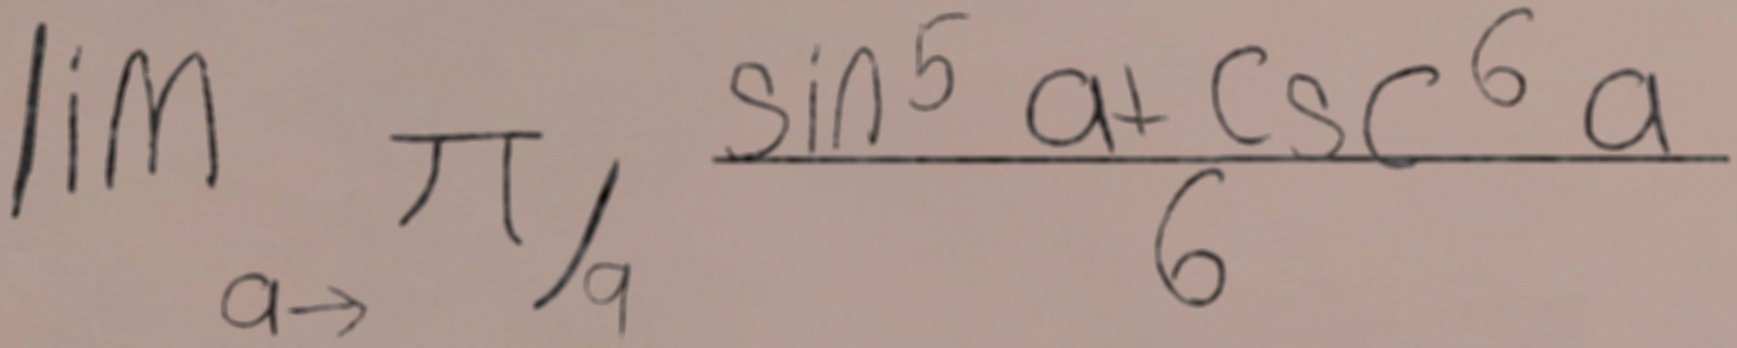 lim_{a→π/9} \frac{sin^5 a + csc^6 a}{6}